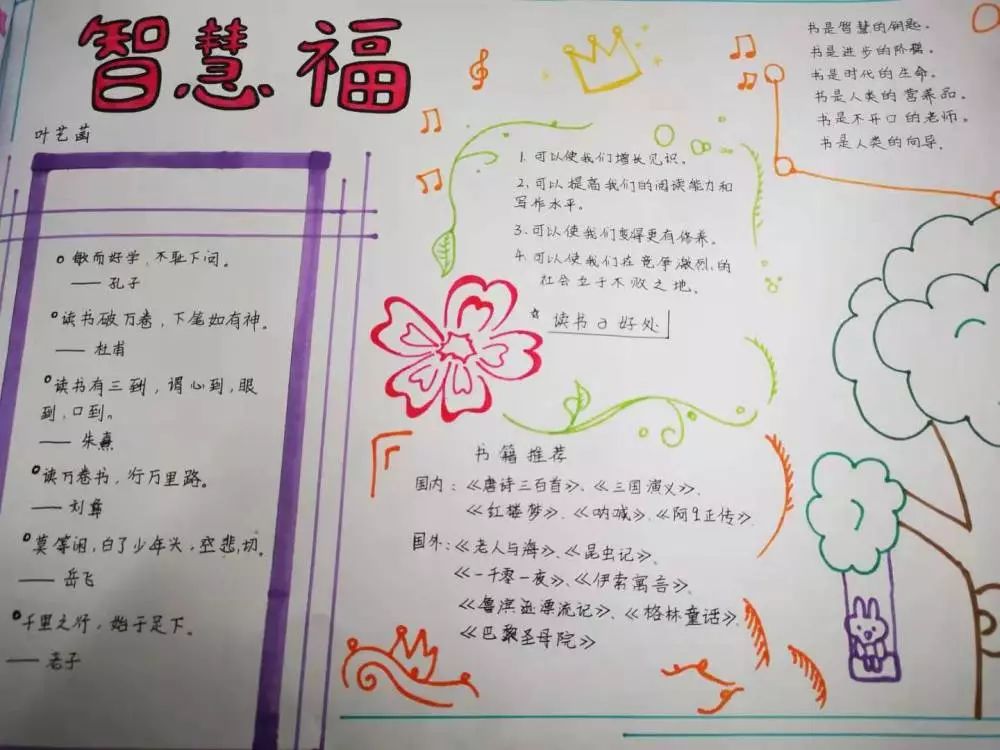 智慧福
叶艺菡
敏而好学，不耻下问。
——孔子
读书破万卷，下笔如有神。
——杜甫
读书有三到，谓心到，眼
到，口到。
——朱熹
读万卷书，行万里路。
——刘彝
莫等闲，白了少年头，空悲，切。
——岳飞
千里之行，始于足下。
——老子
1. 可以使我们增长见识。
2. 可以提高我们的阅读能力和
写作水平。
3. 可以使我们变得更有修养。
4. 可以使我们在竞争激烈，的
社会立于不败之地。
☆ 读书a好处
书籍推荐
国内：《唐诗三百首》、《三国演义》、
《红楼梦》、《呐喊》、《阿Q正传》、
国外：《老人与海》、《昆虫记》、
《一千零一夜》、《伊索寓言》、
《鲁滨逊漂流记》、《格林童话》、
《巴黎圣母院》
书是智慧的钥匙。
书是进步的阶梯。
书是时代的生命。
书是人类的营养品。
书是不开口的老师。
书是人类的向导。